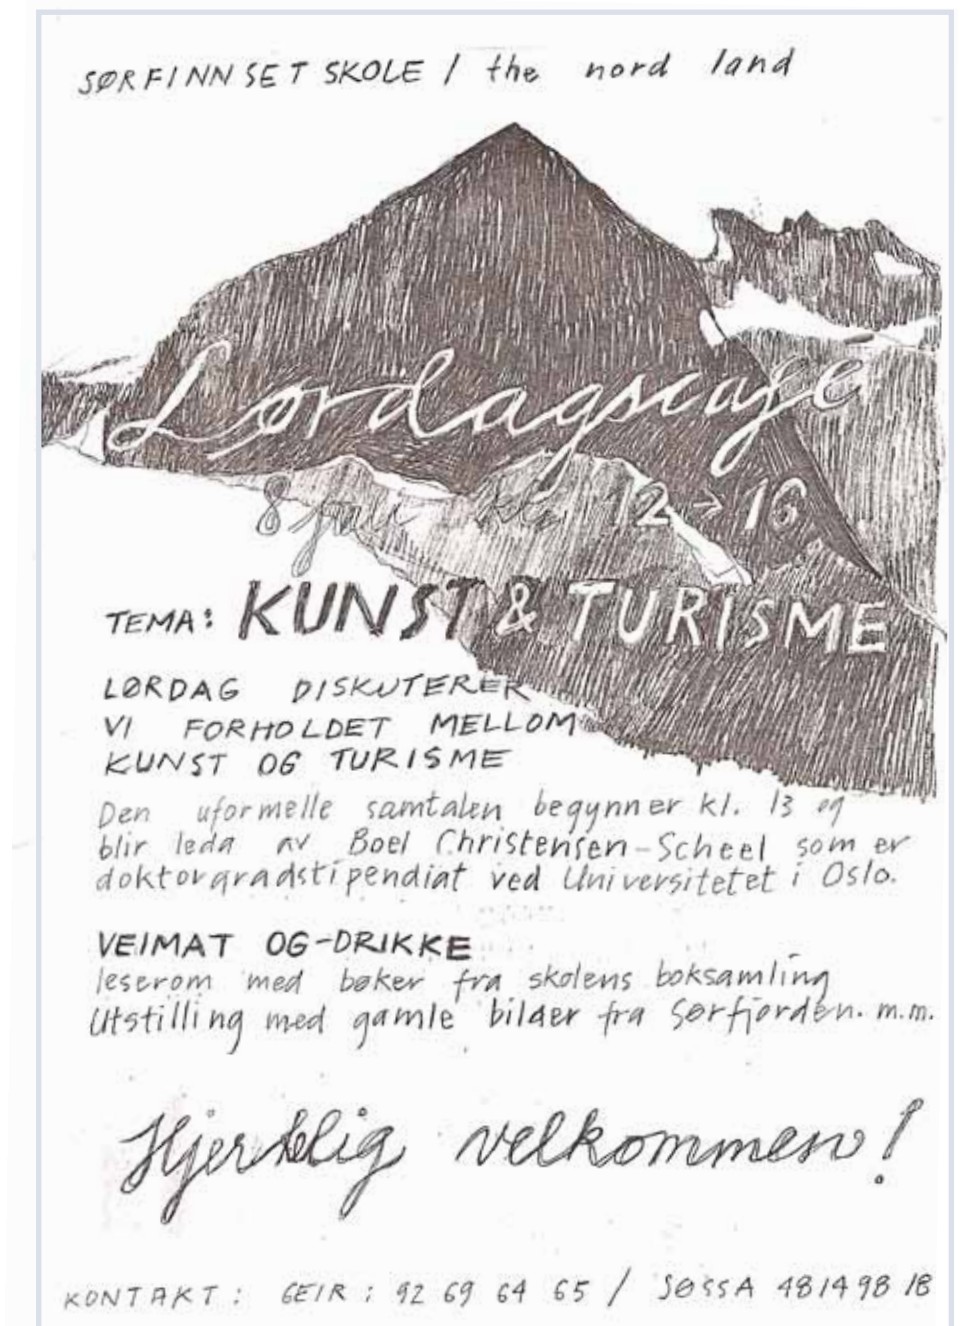 SØRFINNSET SKOLE / the nord land
Lørdagscafé
8 juli kl. 12 → 16
TEMA: KUNST & TURISME
LØRDAG DISKUTERER
VI FORHOLDET MELLOM
KUNST OG TURISME
Den uformelle samtalen begynner kl. 13 og
blir leda av Boel Christensen-Scheel som er
doktorgradstipendiat ved Universitetet i Oslo.
VEIMAT OG-DRIKKE
leserom med bøker fra skolens boksamling
Utstilling med gamle bilder fra Sørfjorden. m.m.
Hjertelig velkommen!
KONTAKT: GEIR: 92 69 64 65 / SØSSA 481498 18